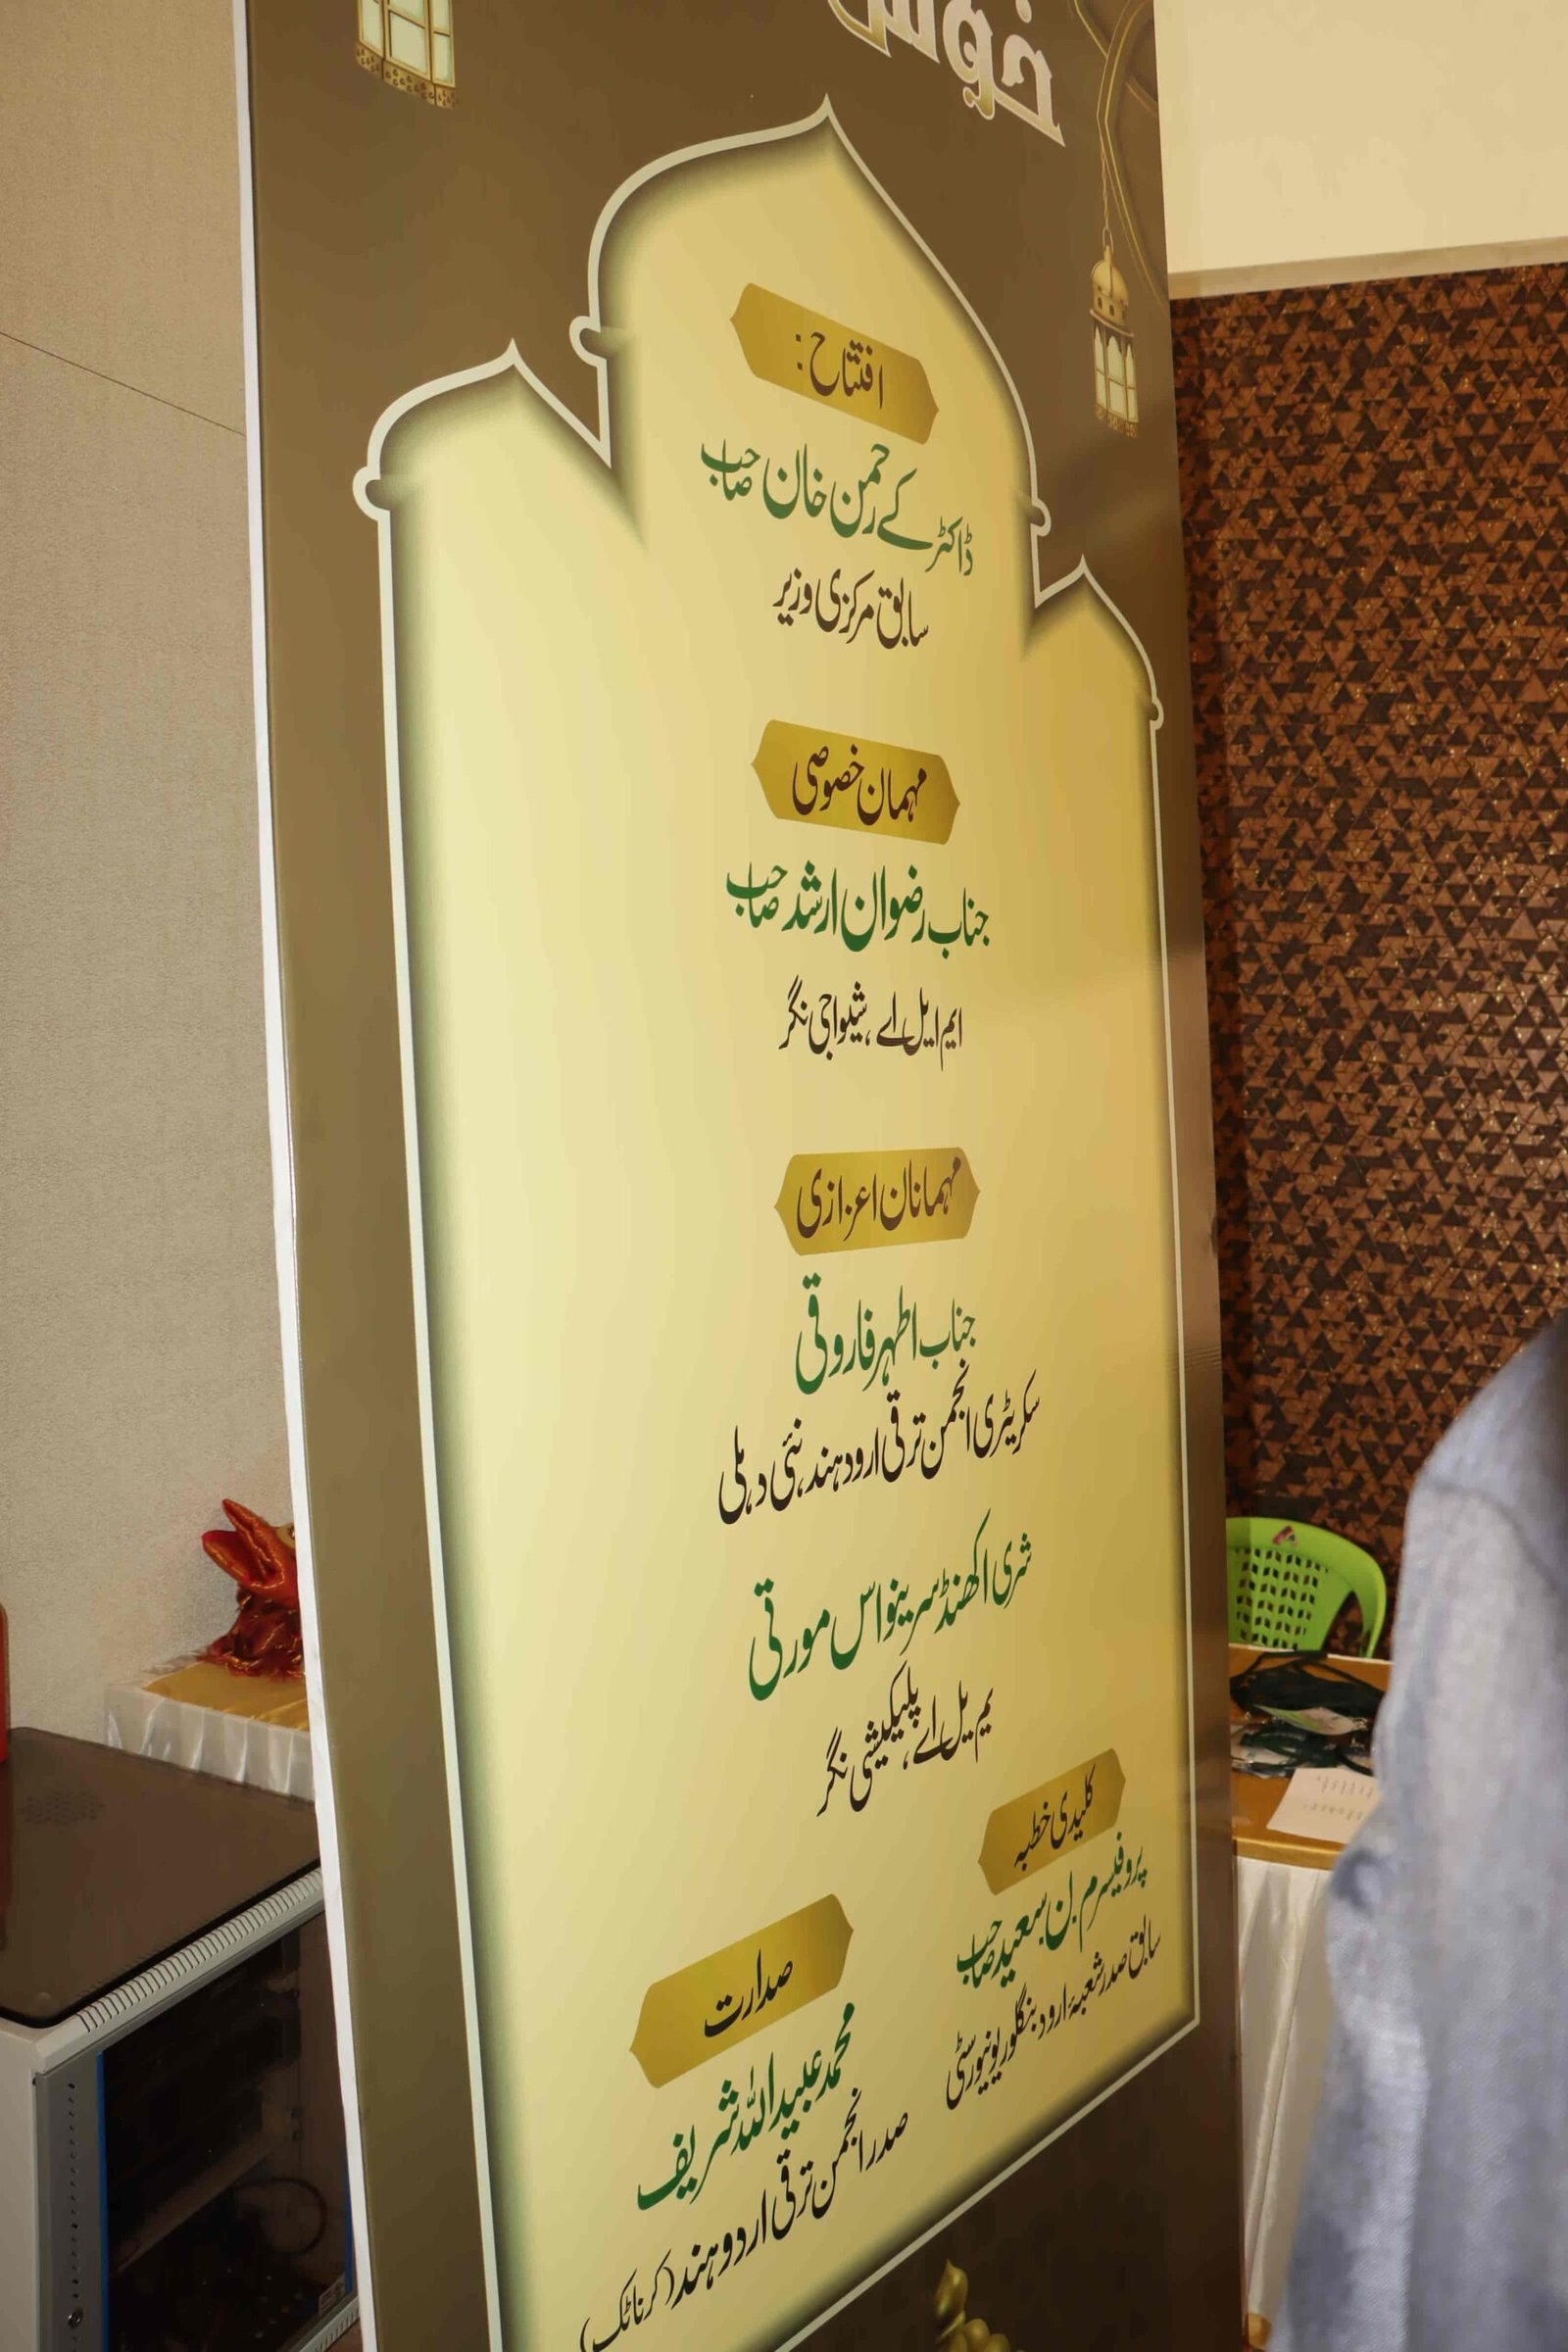 افتتاح:
ڈاکٹر کے رحمن خان صاحب
سابق مرکزی وزیر
مہمان خصوصی
جناب رضوان ارشد صاحب
ایم ایل اے، شیواجی نگر
مہمانان اعزازی
جناب اطہر فاروقی
سکریٹری انجمن ترقی اردو ہند، نئی دہلی
شری اکھنڈ سرینواس مورتی
یم یل اے، پلیکیشی نگر
کلیدی خطبہ
پروفیسر م.ن.سعید صاحب
سابق صدر شعبۂ اردو بنگلور یونیورسٹی
صدارت
محمد عبیداللہ شریف
صدر انجمن ترقی اردو ہند (کرناٹک)